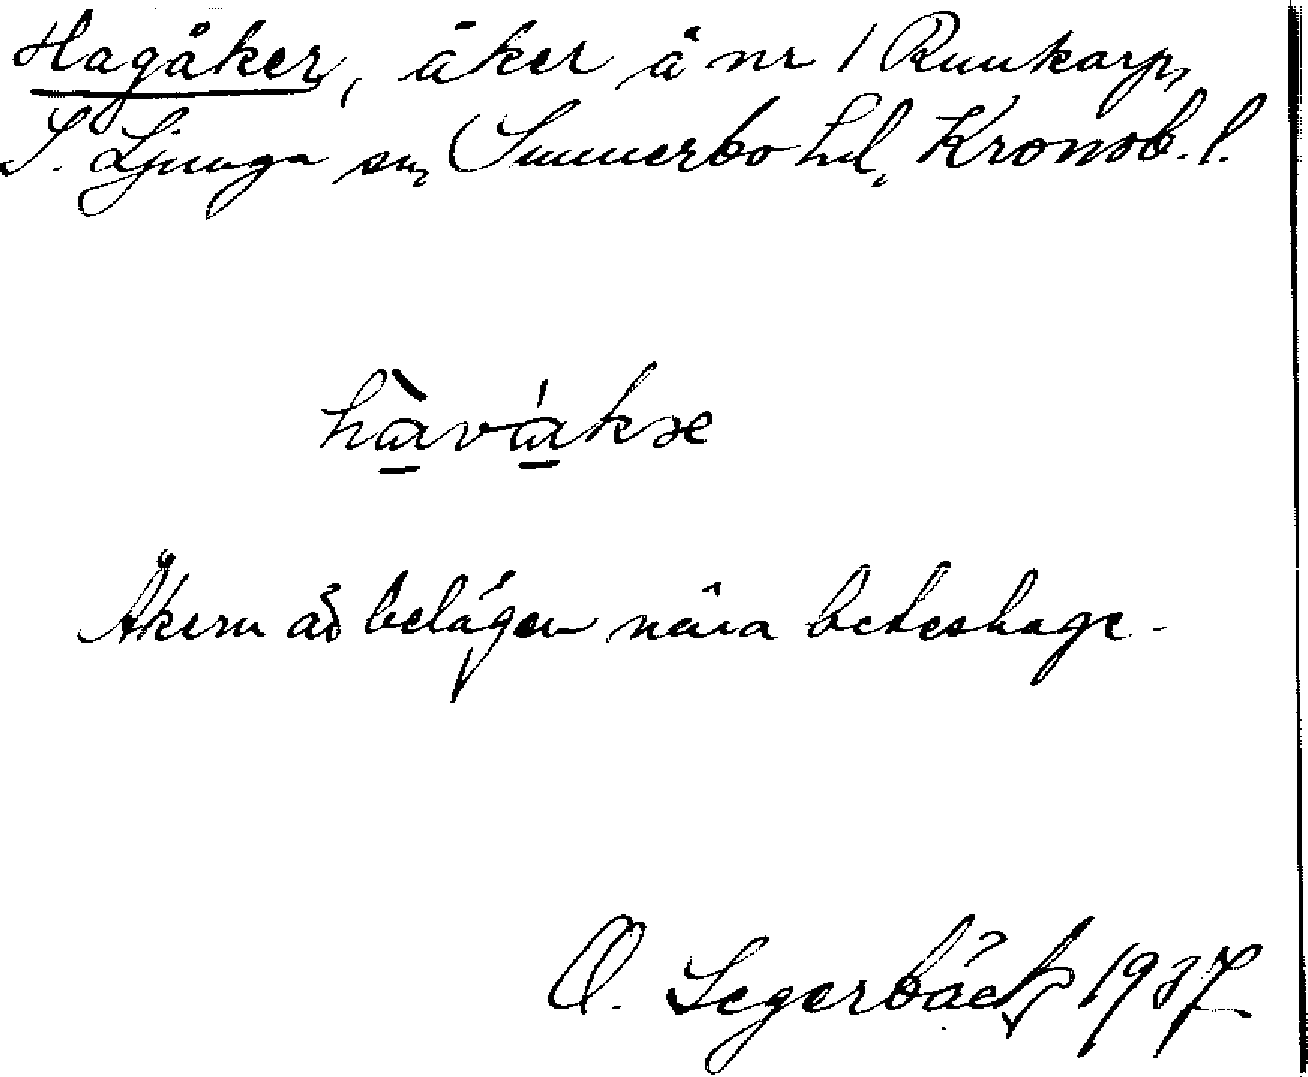 Hagåker, åker å nr 1 Runkarp,
S. Ljunga sn, Sunnerbo hd, Kronob. l.
hàvákse
Åkern är belägen nära beteshage.
O. Segerbäck 1937